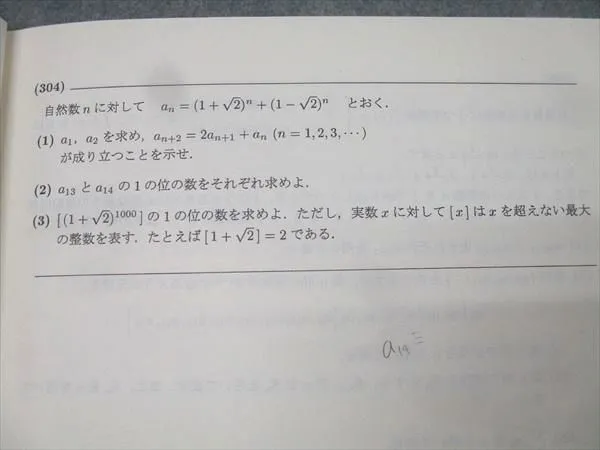 (304)
自然数 n に対して a_n = (1 + √2)^n + (1 − √2)^n とおく.
(1) a_1, a_2 を求め, a_{n+2} = 2a_{n+1} + a_n (n = 1, 2, 3, ···)
が成り立つことを示せ.
(2) a_{13} と a_{14} の 1 の位の数をそれぞれ求めよ.
(3) [(1 + √2)^{1000}] の 1 の位の数を求めよ. ただし, 実数 x に対して [x] は x を超えない最大
の整数を表す. たとえば [1 + √2] = 2 である.
a_{14} =